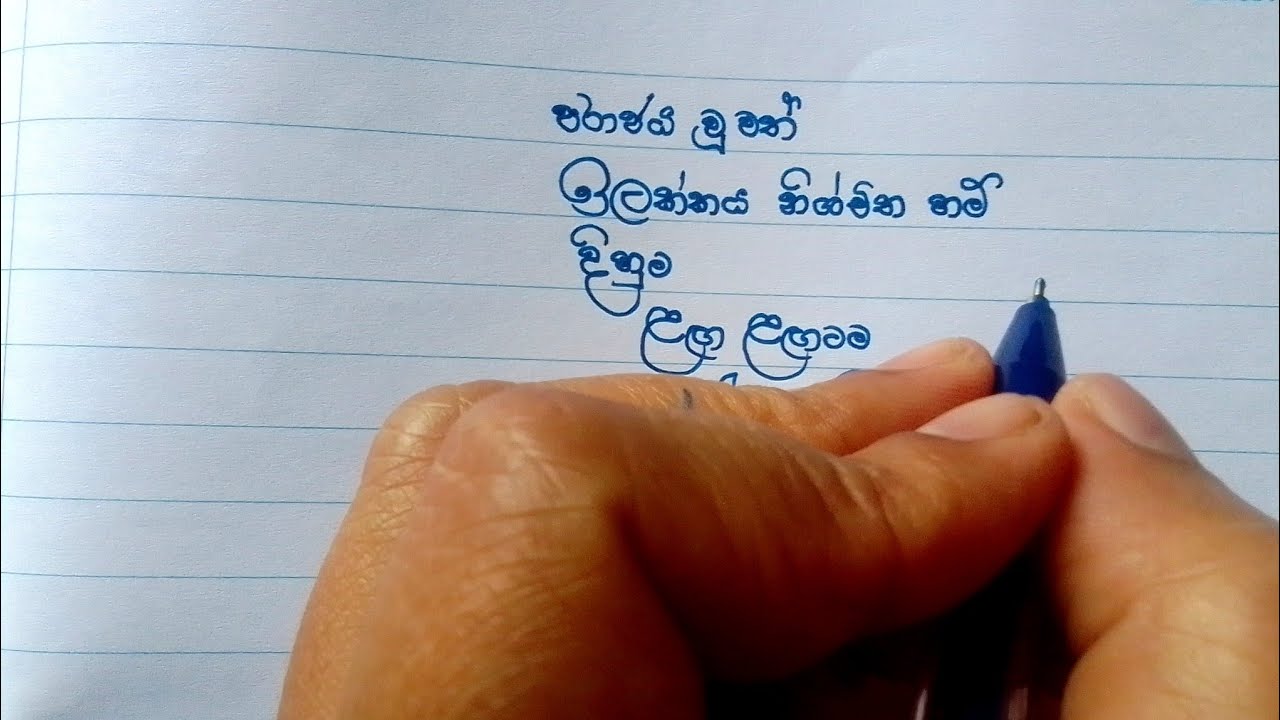 පරාජය වූවත්
ඉලක්කය නිශ්චිත නම්
දිනුම
ළඟ ළඟටම